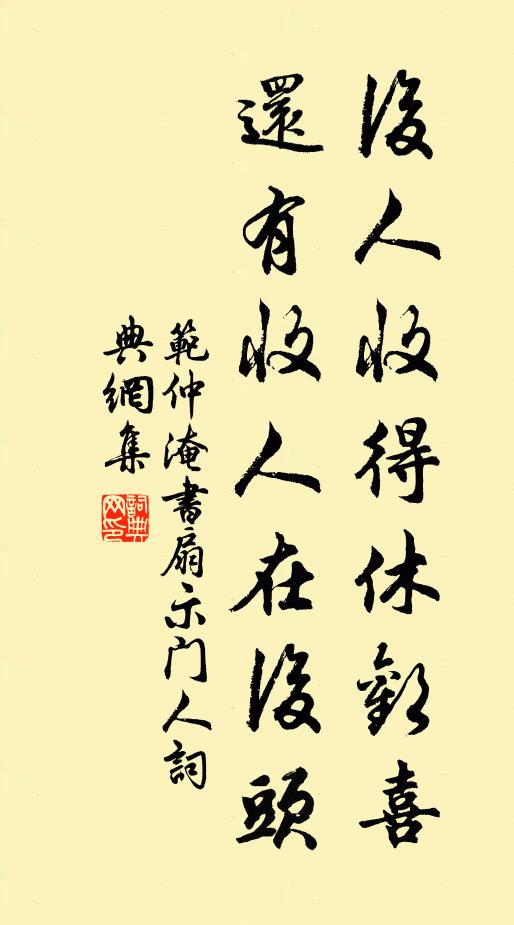 後人收得休歡喜
還有收人在後頭
範仲淹書扇示門人詞
典網集
詞典
網印